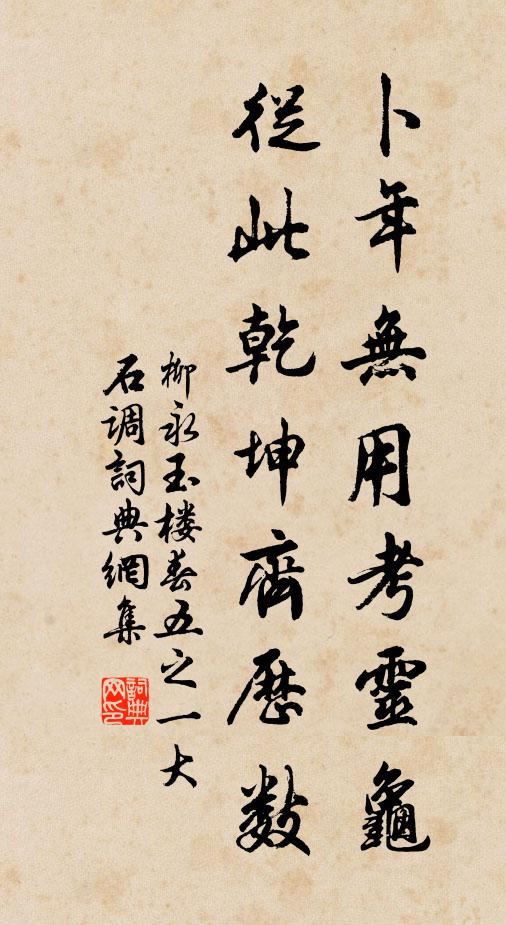 卜年無用考靈龜
從此乾坤齊歷數
柳永玉楼春五之一大
石调詞典網集
詞典网印